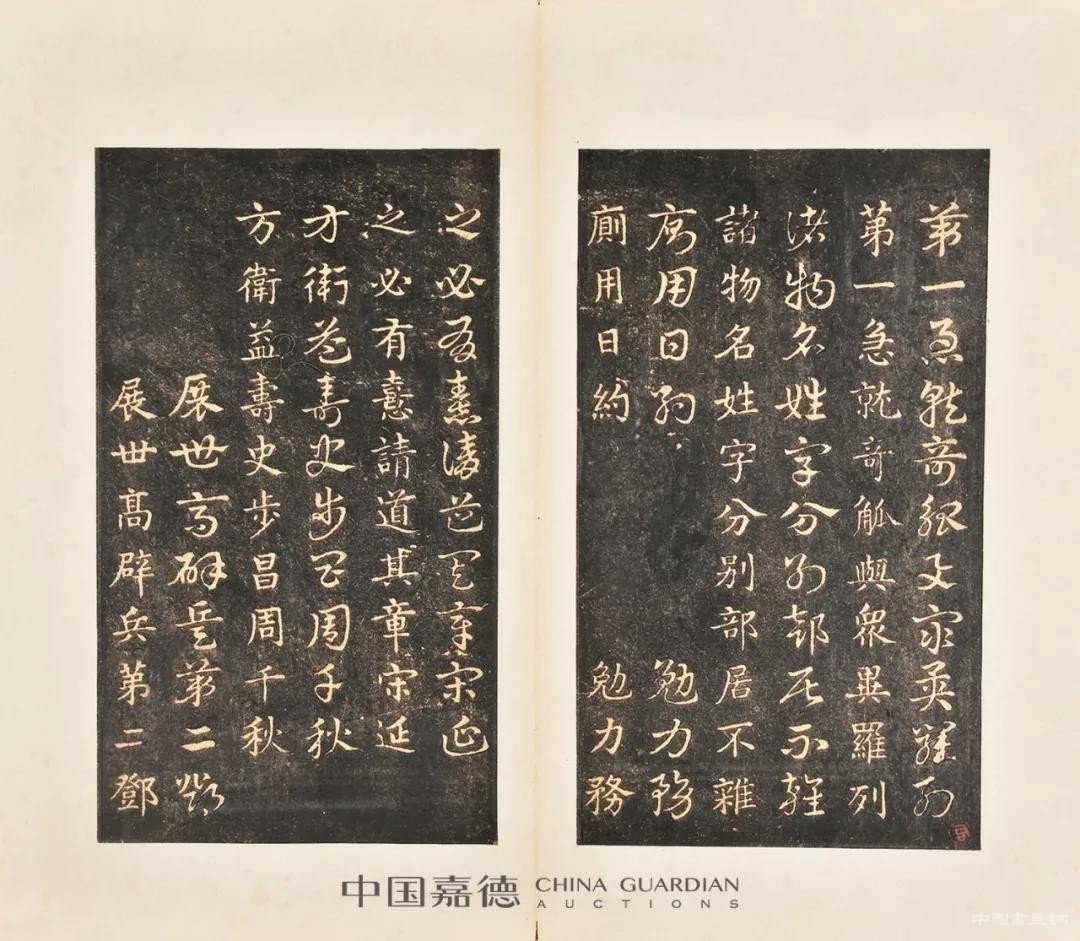 第一急就奇觚與衆異羅列
第一急就奇觚與衆異羅列
諸物名姓字分別部居不雜
諸物名姓字分別部居不雜
廁用日約 勉力務
廁用日約 勉力務
之必有憙請道其章宋延
之必有憙請道其章宋延
方衛益壽史步昌周千秋
方衛益壽史步昌周千秋
展世高辟兵第二鄧
展世高辟兵第二鄧
中国嘉德 CHINA GUARDIAN
AUCTIONS
中国書画網